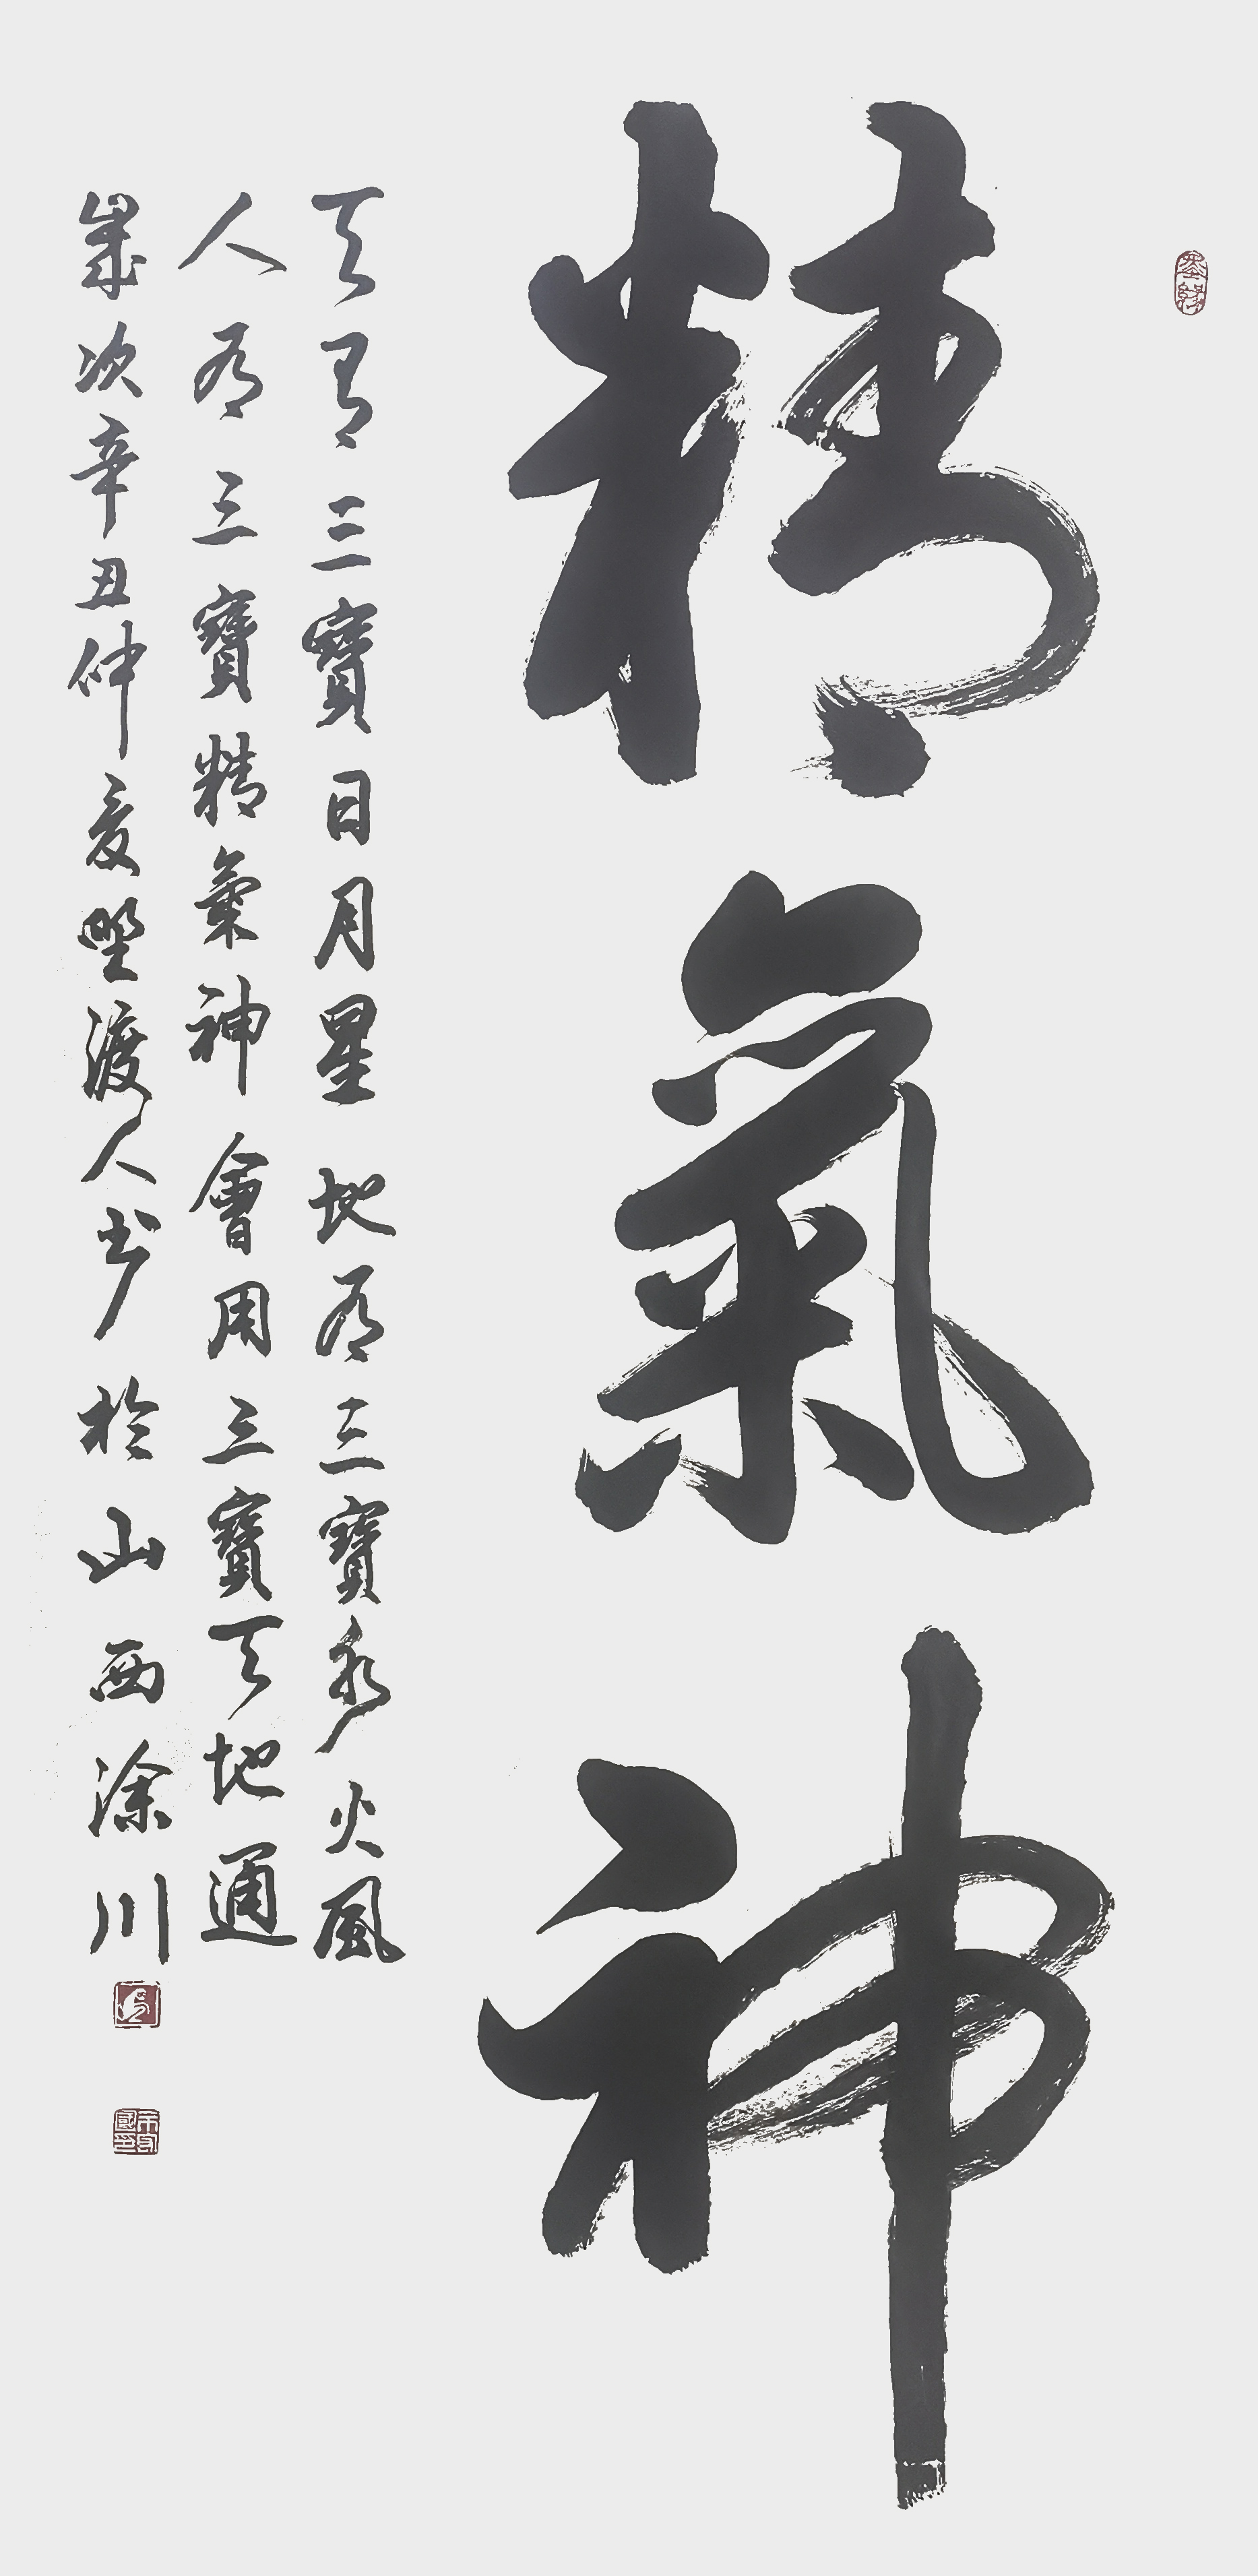 精氣神
天有三寶日月星地有三寶水火風
人有三寶精氣神會用三寶天地通
歲次辛丑仲夏野渡人書於山西涂川
墨緣